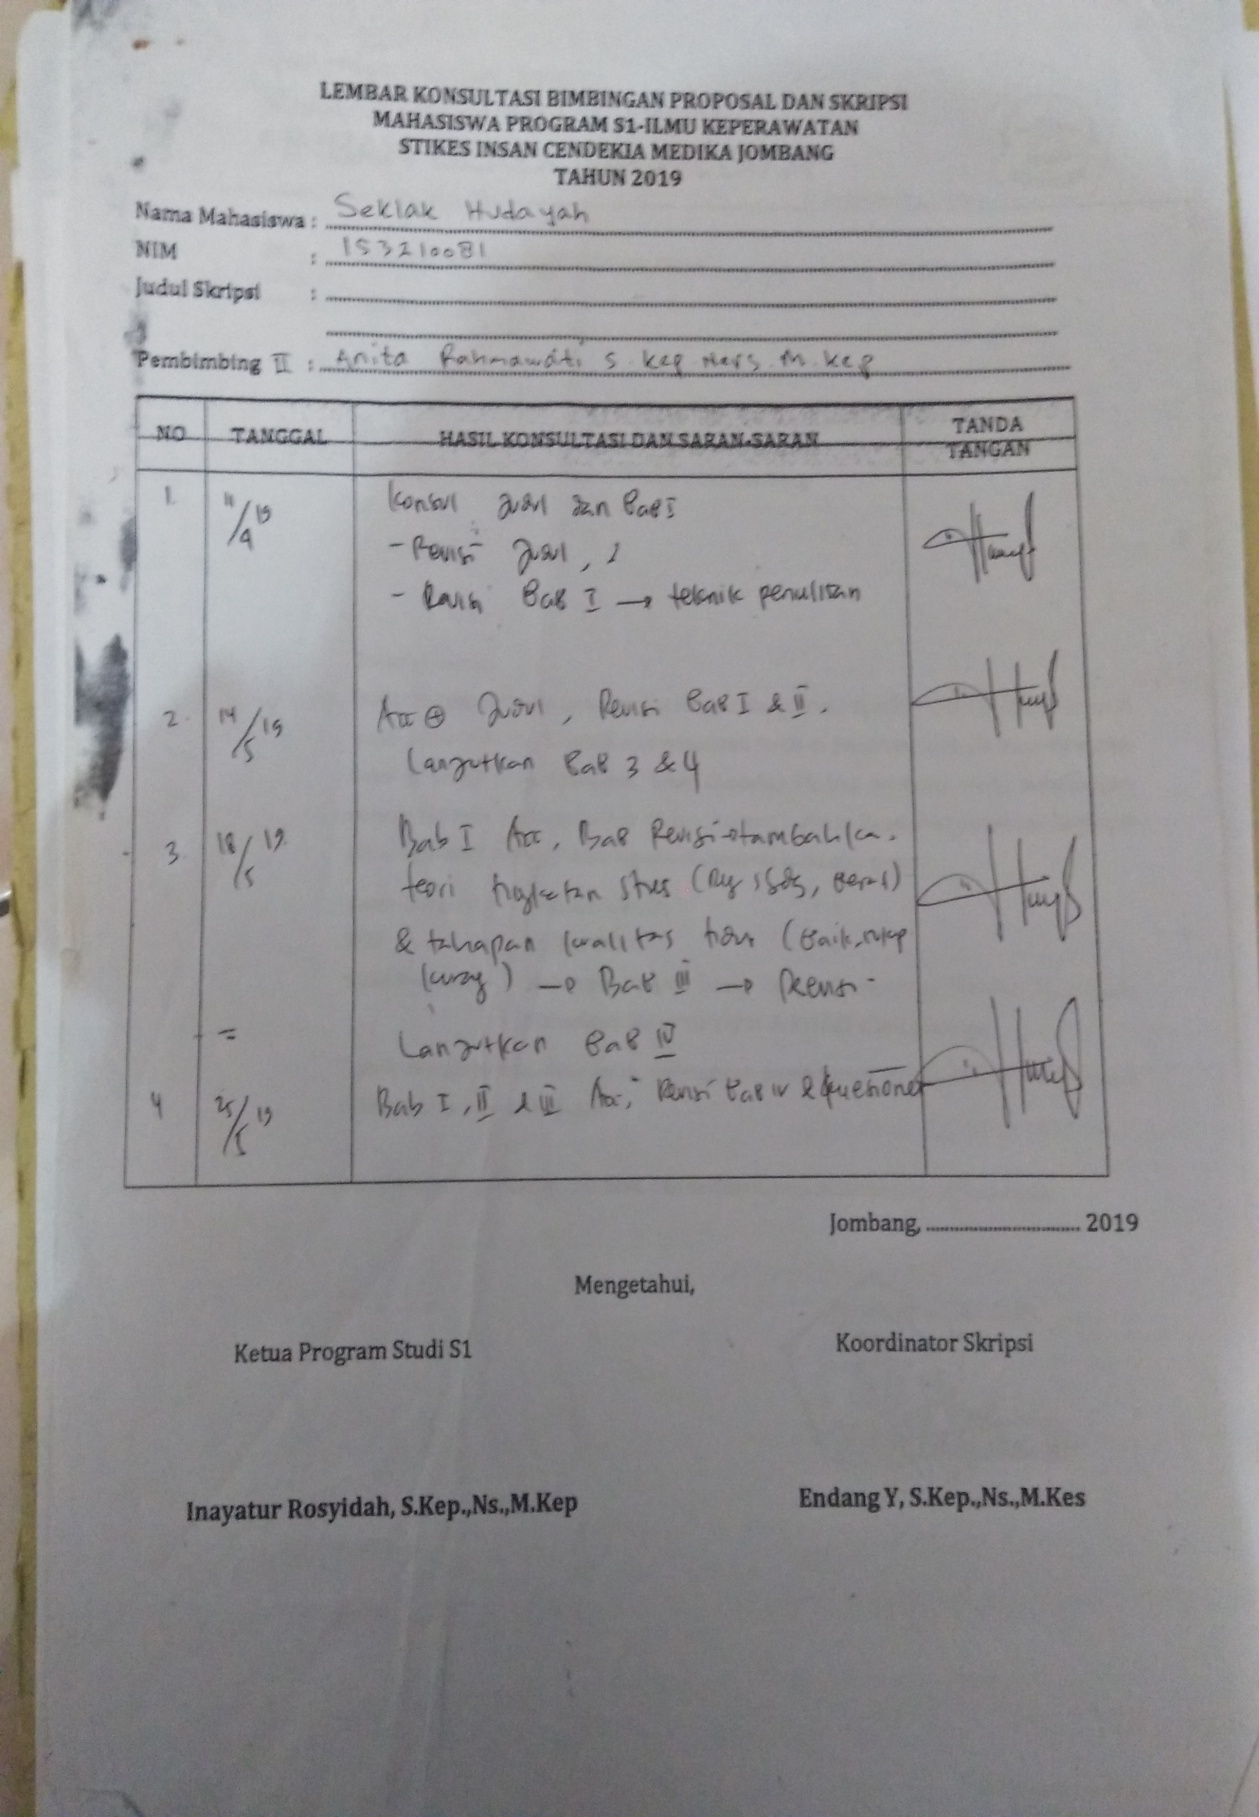 LEMBAR KONSULTASI BIMBINGAN PROPOSAL DAN SKRIPSI
MAHASISWA PROGRAM S1-ILMU KEPERAWATAN
STIKES INSAN CENDEKIA MEDIKA JOMBANG
TAHUN 2019
Nama Mahasiswa : Seklak Hudayah
NIM : 153210081
Judul Skripsi :
Pembimbing II : Anita Rahmawati S. Kep Ners. M. Kep
NO TANGGAL HASIL KONSULTASI DAN SARAN-SARAN TANDA TANGAN
1. 11/4 19 Konsul Judul dan Bab I
- Revisi Judul,
- Revisi Bab I → teknik penulisan
2. 14/5 19 Acc Judul, Revisi Bab I & II.
Lanjutkan Bab 3 & 4
3. 18/5 19 Bab I Acc, Bab Revisi → tambahkan
teori tingkatan stres (Rg, sdg, berat)
& tahapan kualitas tidur (Baik, cukup
kurang) → Bab III → Revisi
Lanjutkan Bab IV
4 25/5 19 Bab I, II & III Acc, Revisi Bab IV & questioner
Jombang, 2019
Mengetahui,
Ketua Program Studi S1 Koordinator Skripsi
Inayatur Rosyidah, S.Kep.,Ns.,M.Kep Endang Y, S.Kep.,Ns.,M.Kes